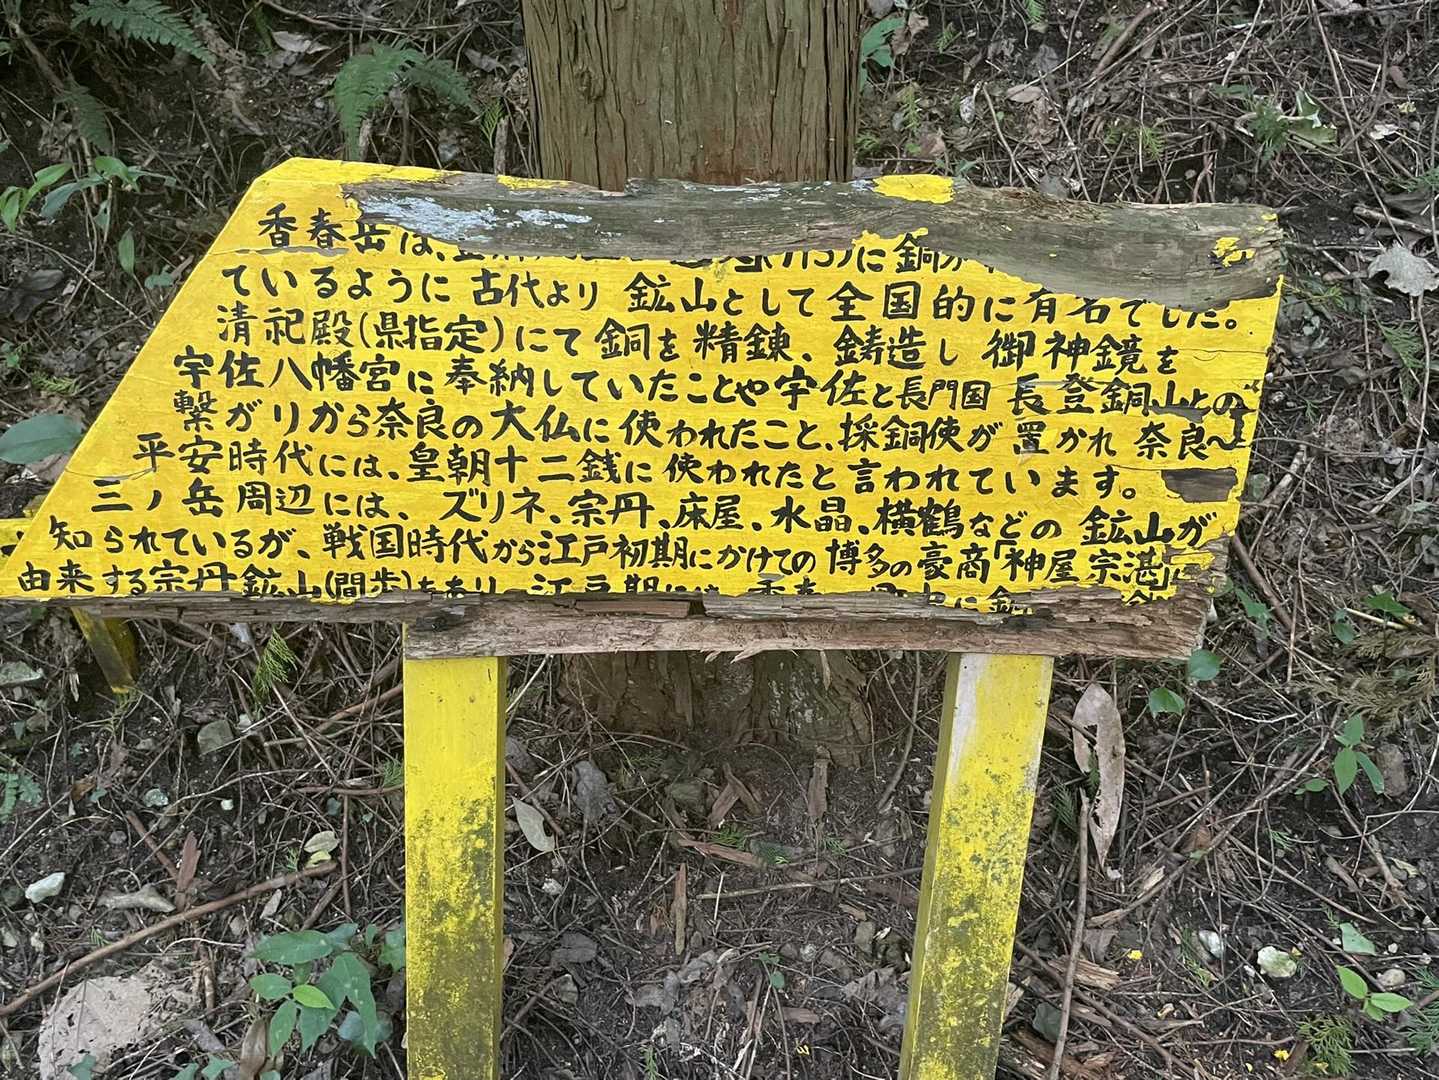 香春岳は、
に銅が
ているように古代より 鉱山として全国的に有名でした。
清祀殿(県指定)にて銅を精錬、鋳造し御神鏡を
宇佐八幡宮に奉納していたことや宇佐と長門国 長登銅山との
繋がりから奈良の大仏に使われたこと、採銅使が置かれ 奈良〜
平安時代には、皇朝十二銭に使われたと言われています。
三ノ岳周辺には、ズリネ、宗丹、床屋、水晶、横鶴などの鉱山が
知られているが、戦国時代から江戸初期にかけての博多の豪商「神屋宗湛」に
由来する宗丹鉱山(間歩)もあり、江戸期には、香春